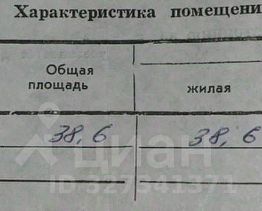 Характеристика помещени
Общая
площадь
жилая
38,6 38,6
циан